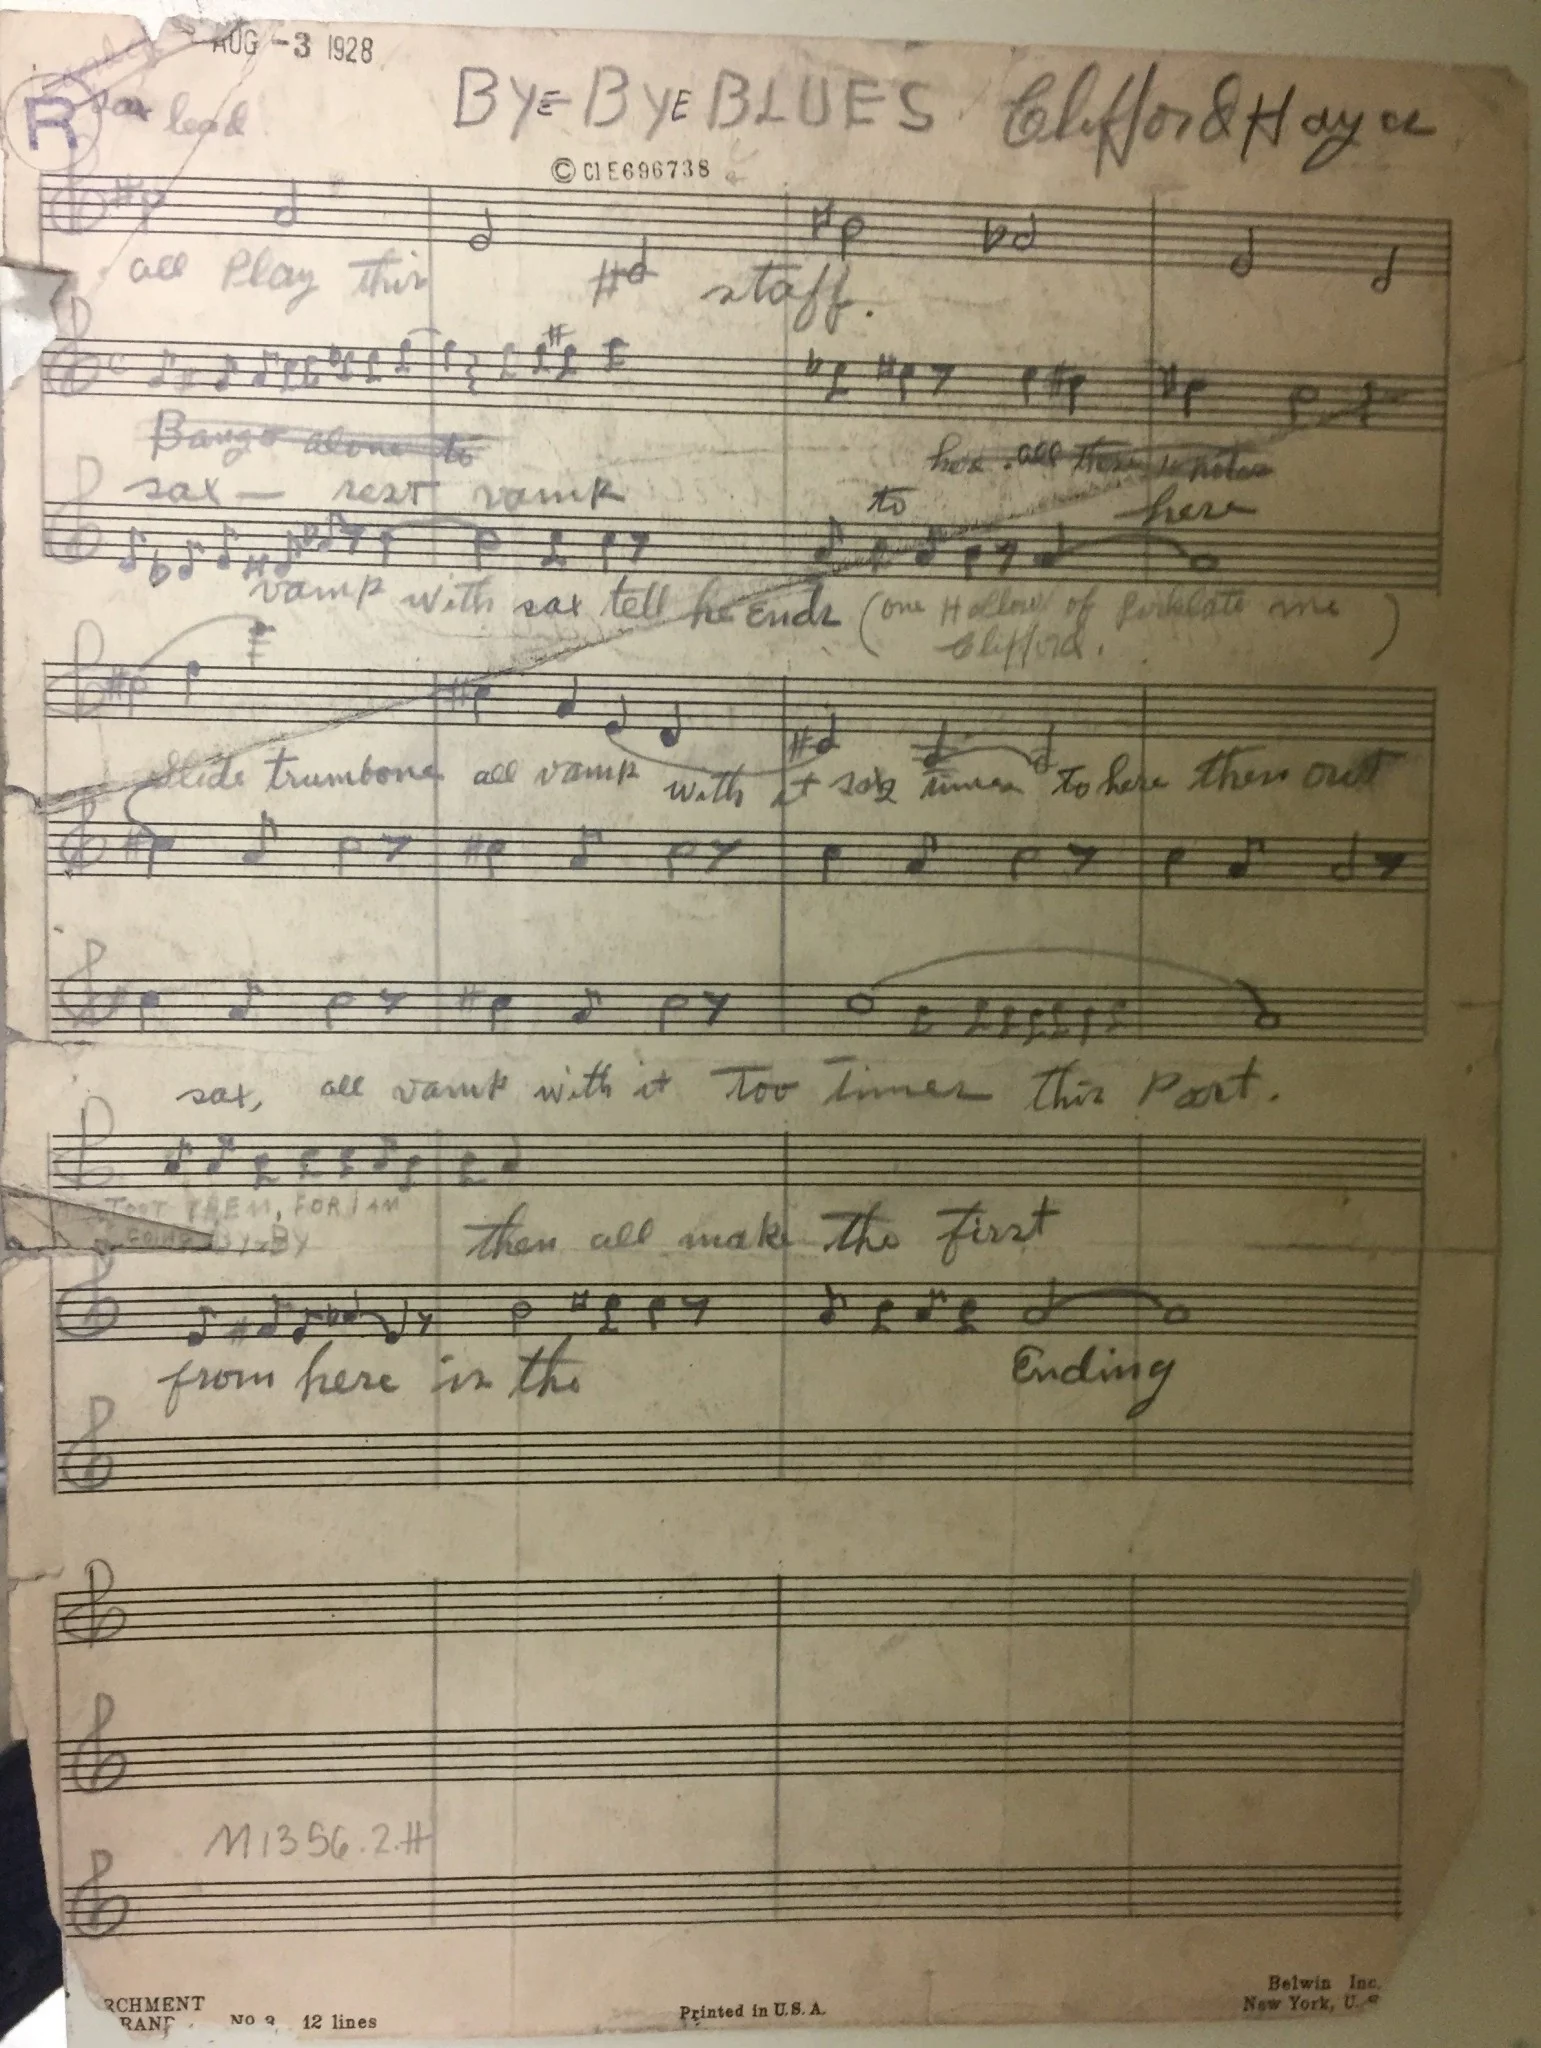 AUG -3 1928
R sax lead
BYE BYE BLUES Clifford Hayes
© CIE696738
all Play this staff.
Bango alone to
here. all these notes
sax — rest vamp to here
vamp with sax tell he Ends (one Hollow of me
Clifford. )
Slide trumbone all vamp with it six times to here then out
sax, all vamp with it Too Times this Part.
TOOT THEM, FOR I AM
GOING BY-BY
then all make the first
from here is the Ending
M1356.2.H
RCHMENT
RAND No 12 lines
Printed in U.S.A.
Belwin Inc.
New York, U.